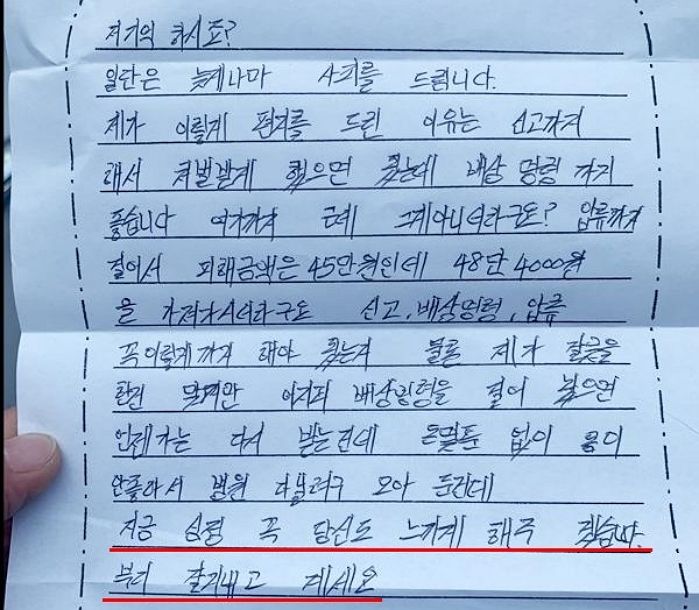 저기억 하시죠?
일단은 늦게나마 사죄를 드립니다.
제가 이렇게 편지를 드린 이유는 신고까지
해서 처벌받게 했으면 됐는데 배상 명령 까지
좋습니다 여기까지 근데 그게아니더라구요? 압류까지
걸어서 피해금액은 45만원인데 48만 4000원
을 가져가시더라구요 신고, 배상명령, 압류
꼭이렇게까지 해야 됐는지 물론 제가 잘못을
한건 맞지만 어차피 배상명령을 걸어 놨으면
언젠가는 다시 받는건데 돈몇푼 없이 몸이
안좋아서 병원 다닐려구 모아 둔건데
지금 심정 꼭 당신도 느끼게 해주 겠습니다.
부디 잘지내고 계세요